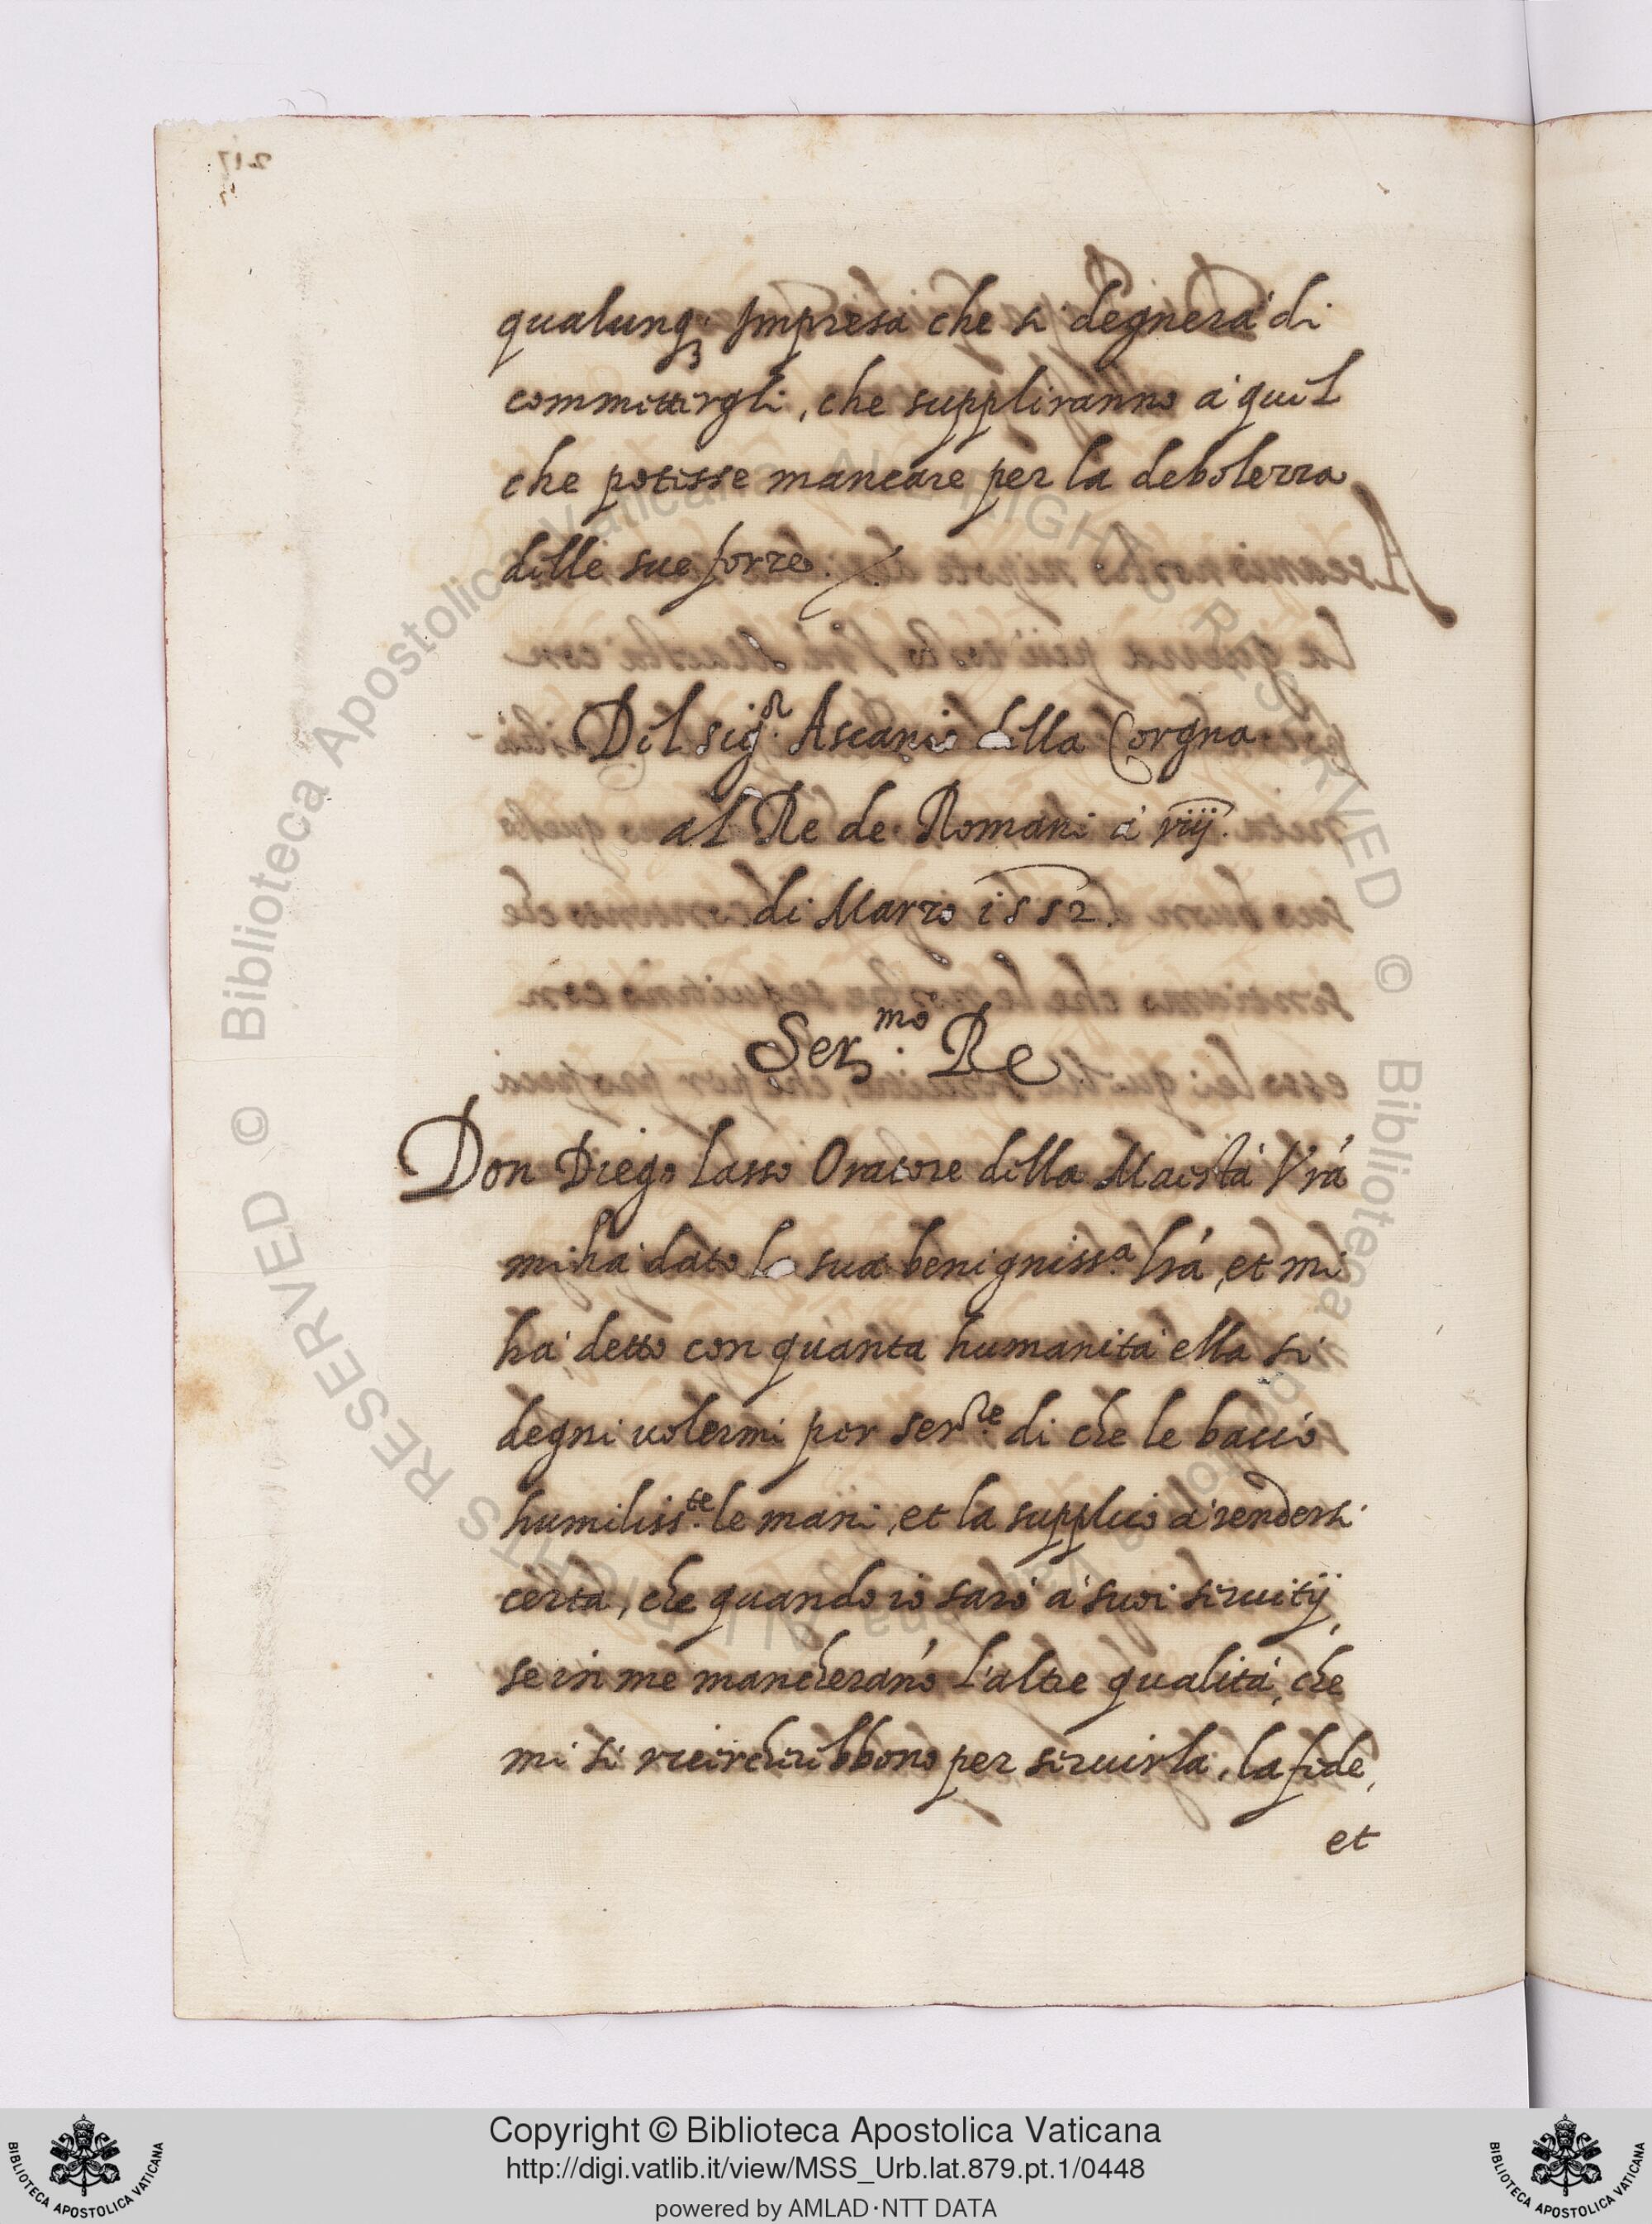 qualunq; Impresa che si degnerà di
committergli, che suppliranno à quel
che potesse mancare per la debolezza
delle sue forze.
Del sig.r Ascanio della Corgna
al Re de Romani à viij.
di Marzo 1552.
Ser.mo Re
Don Diego Lasso Oratore della Maestà Vrã
mi hà dato la sua benigniss.a lrã, et mi
hà detto con quanta humanità ella si
degni volermi per ser.re di che le baccio
humiliss.te le mani, et la supplico à rendersi
certa, che quando io sarò à suoi servitij,
se in me mancherãno l'altre qualità, che
mi si ricircherebbono per servirla, la fede,
et
Copyright © Biblioteca Apostolica Vaticana
http://digi.vatlib.it/view/MSS_Urb.lat.879.pt.1/0448
powered by AMLAD·NTT DATA
BIBLIOTECA APOSTOLICA VATICANA
BIBLIOTECA APOSTOLICA VATICANA